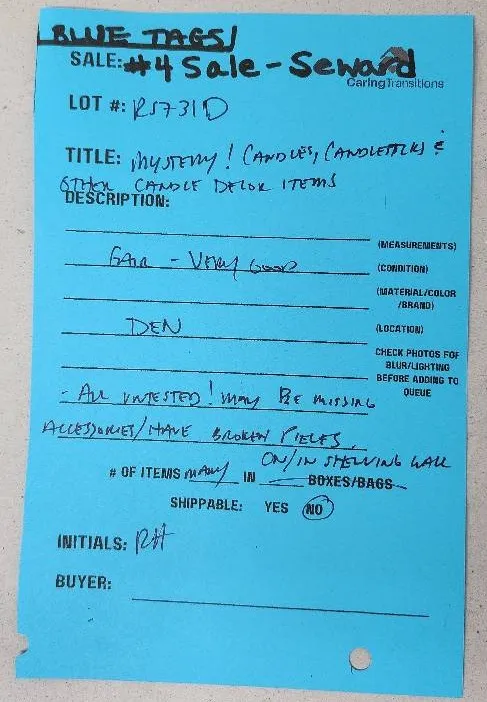 BLUE TAGS!
SALE: #4 Sale - Seward
CaringTransitions
LOT #: RS731D
TITLE: MYSTERY! CANDLES, CANDLESTICKS &
OTHER CANDLE DECOR ITEMS
DESCRIPTION:
(MEASUREMENTS)
FAIR - VERY GOOD (CONDITION)
(MATERIAL/COLOR
/BRAND)
DEN (LOCATION)
CHECK PHOTOS FOR
BLUR/LIGHTING
BEFORE ADDING TO
QUEUE
- ALL UNTESTED! MAY BE MISSING
ACCESSORIES/HAVE BROKEN PIECES.
ON/IN SHELVING WALL
# OF ITEMS MANY IN BOXES/BAGS
SHIPPABLE: YES NO
INITIALS: RH
BUYER: